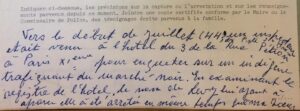 Indiquer ci-dessous, les précisions sur la capture ou l'arrestation et sur les renseigne-
ments parvenus depuis ce moment. (Joindre une copie certifiée conforme par le Maire ou le
Commissaire de Police, des témoignages écrits parvenus à la famille).
Vers le début de Juillet (44) un inspecteur
était venu à l'hôtel du 3 de la Rue
à Paris XIeme pour enquêter sur un indigène
trafiquant du marché noir. En examinant le
registre de l'hôtel, le nom de Levy lui ayant
apparu elle a été arrêtée en même temps